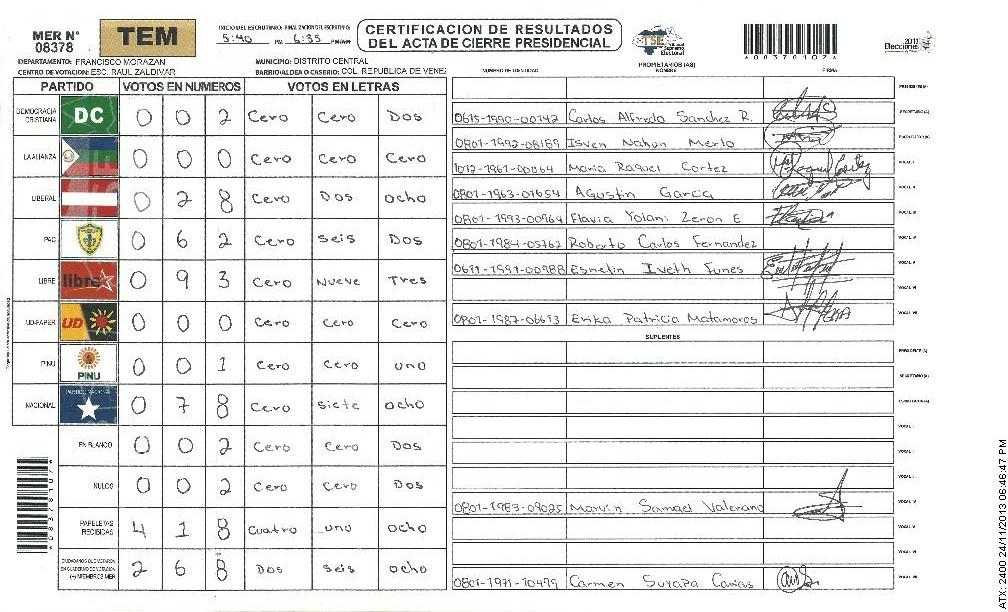 MER N° 08378
TEM
INICIO DEL ESCRUTINIO: FINALIZACION DEL ESCRUTINIO:
5:40 PM 6:35 PM
CERTIFICACION DE RESULTADOS
DEL ACTA DE CIERRE PRESIDENCIAL
TSE Tribunal Supremo Electoral
*08378107*
2013
Elecciones
DEPARTAMENTO: FRANCISCO MORAZAN
MUNICIPIO: DISTRITO CENTRAL
CENTRO DE VOTACION: ESC. RAUL ZALDIVAR
BARRIO/ALDEA O CASERIO: COL. REPUBLICA DE VENEZ
PROPIETARIOS (AS)
NUMERO DE IDENTIDAD NOMBRE FIRMA
PARTIDO VOTOS EN NUMEROS VOTOS EN LETRAS
DEMOCRACIA CRISTIANA DC 0 0 2 Cero Cero Dos
LA ALIANZA 0 0 0 Cero Cero Cero
LIBERAL 0 2 8 Cero Dos ocho
PAC 0 6 2 Cero Seis Dos
LIBRE libre 0 9 3 Cero Nueve Tres
UD-FAPER UD 0 0 0 Cero Cero Cero
PINU PINU 0 0 1 Cero Cero uno
NACIONAL PARTIDO NACIONAL 0 7 8 Cero Siete ocho
EN BLANCO 0 0 2 Cero Cero Dos
NULOS 0 0 2 Cero Cero Dos
PAPELETAS RECIBIDAS 4 1 8 Cuatro uno ocho
CIUDADANOS QUE VOTARON EN CUADERNO DE VOTACION (+) MIEMBROS MER 2 6 8 Dos Seis ocho
PRESIDENTE (A)
0615-1990-00742 Carlos Alfredo Sanchez R. SECRETARIO (A)
0801-1992-08189 Isven Nahun Merlo ESCRUTADOR (A)
1012-1961-00064 Maria Raquel Cortez VOCAL I
0801-1963-01654 Agustin Garcia VOCAL II
0801-1993-00964 Flavia Yolani Zeron E VOCAL III
0801-1984-05762 Roberto Carlos Fernandez VOCAL IV
0611-1991-00988 Esnelin Iveth Funes VOCAL V
VOCAL VI
0801-1987-06613 Erika Patricia Matamoros VOCAL VII
SUPLENTES
PRESIDENTE (A)
SECRETARIO (A)
ESCRUTADOR (A)
VOCAL I
VOCAL II
VOCAL III
0801-1983-09025 Marvin Samael Valerano VOCAL IV
VOCAL V
VOCAL VI
0801-1971-10499 Carmen Suyapa VOCAL VII
*08378107*
ATX: 2400 24/11/2013 06:46:47 PM